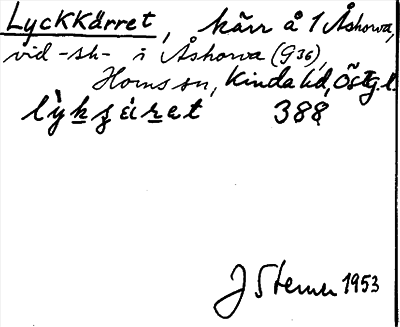 Lyckkärret, kärr å 1 Åshorva,
vid -sh- i Åshorva (G36),
Horns sn, Kinda hd, Östg. l.
388
J Sterner 1953